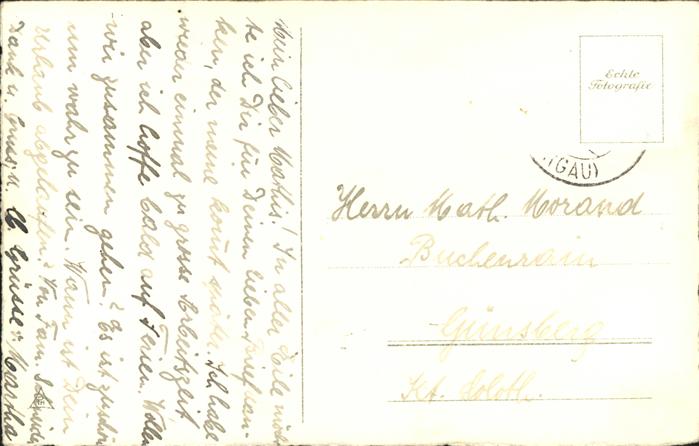 Mein lieber Mathis! In aller Eile möch-
te ich Dir für Deinen lieben Brief dan-
ken, der meine kommt später. Ich habe
wieder einmal zu grosse Arbeitszeit
aber ich hoffe bald auf Ferien. Wollen
wir zusammen gehen? Es ist zu schön
um wahr zu sein. Wann ist Dein
Urlaub abgelaufen? Von Fam.
Dank u. Gruss. u. Grüsse v. Martha
Echte
Fotografie
GAU)
Herrn Math. Morand
Buchenrain
Günsberg
Kt. Soloth.